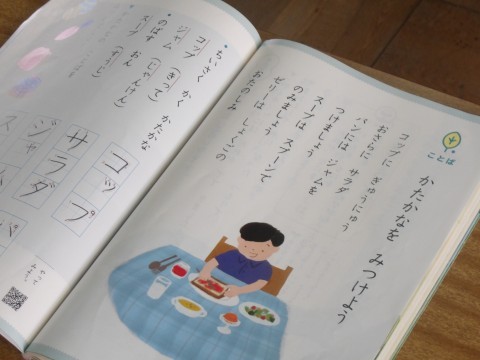 ことば
かたかなを みつけよう
コップに ぎゅうにゅう
おさらに サラダ
パンには ジャムを
つけましょう
スープは スプーンで
のみましょう
ゼリーは しょくごの
おたのしみ
・ちいさく かく かたかな
コップ (きって)
ジャム (じゃんけん)
・のばす おん
スープ (すうじ)
コップ
サラダ
ジャム